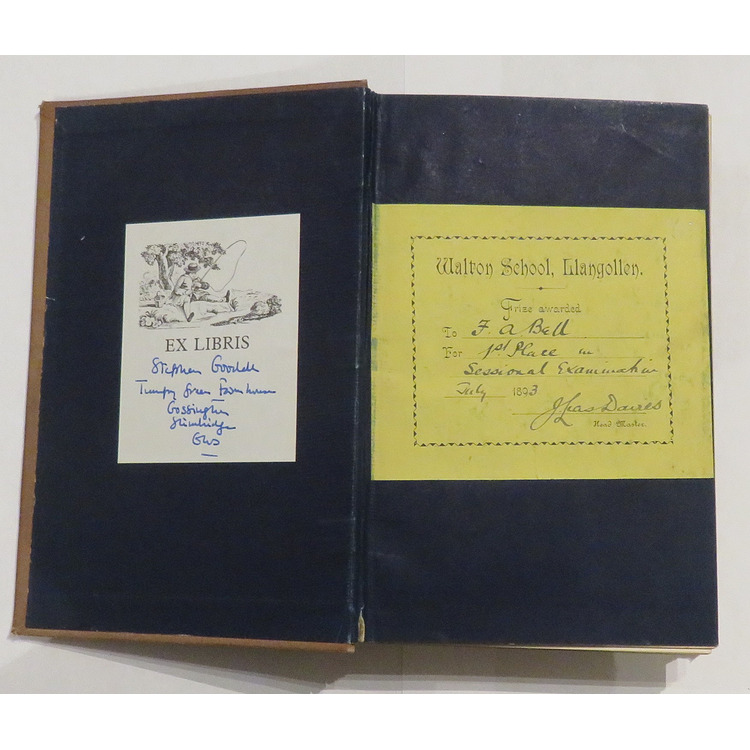 EX LIBRIS
Stephen
Green Farmhouse
Glos
Walton School, Llangollen.
Prize awarded
To F. A Bell
For 1st Place in
Sessional Examination
July 1893
Davies
Head Master.